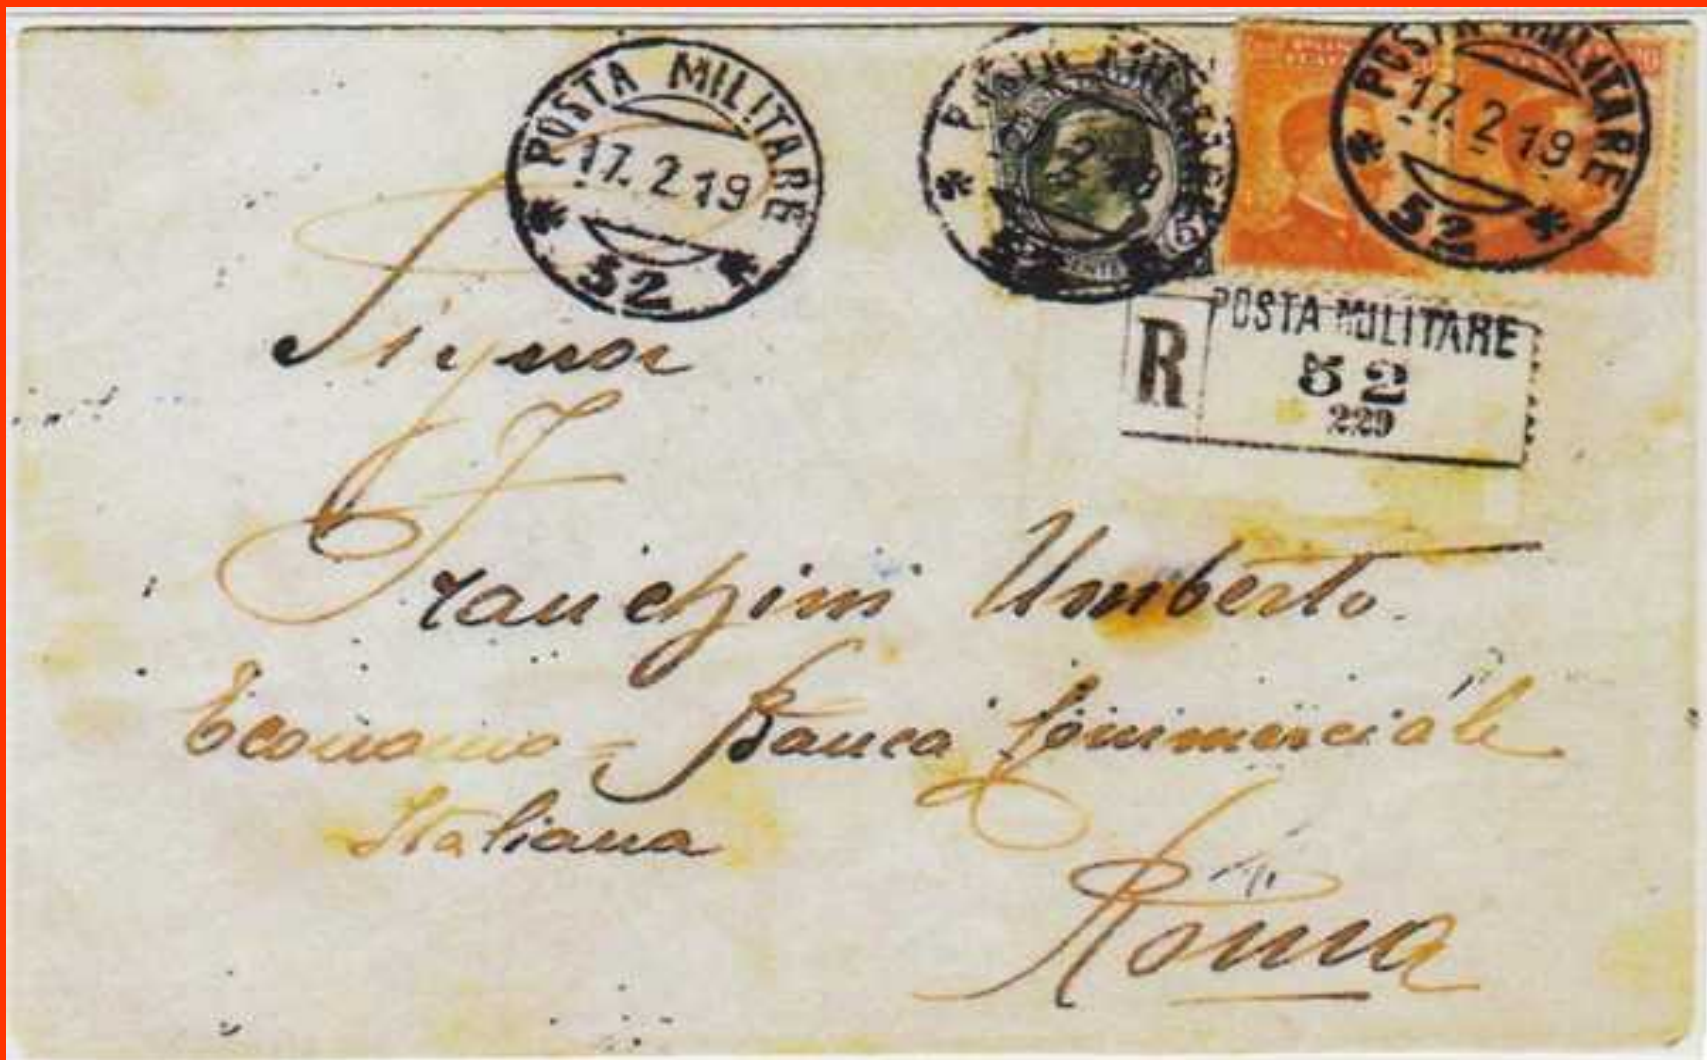 POSTA MILITARE
17.2 19
52
POSTA MILITARE
17.2 19
52
R
POSTA MILITARE
52
229
Signor
Franchini Umberto.
Economo = Banca Commerciale
Italiana
Roma